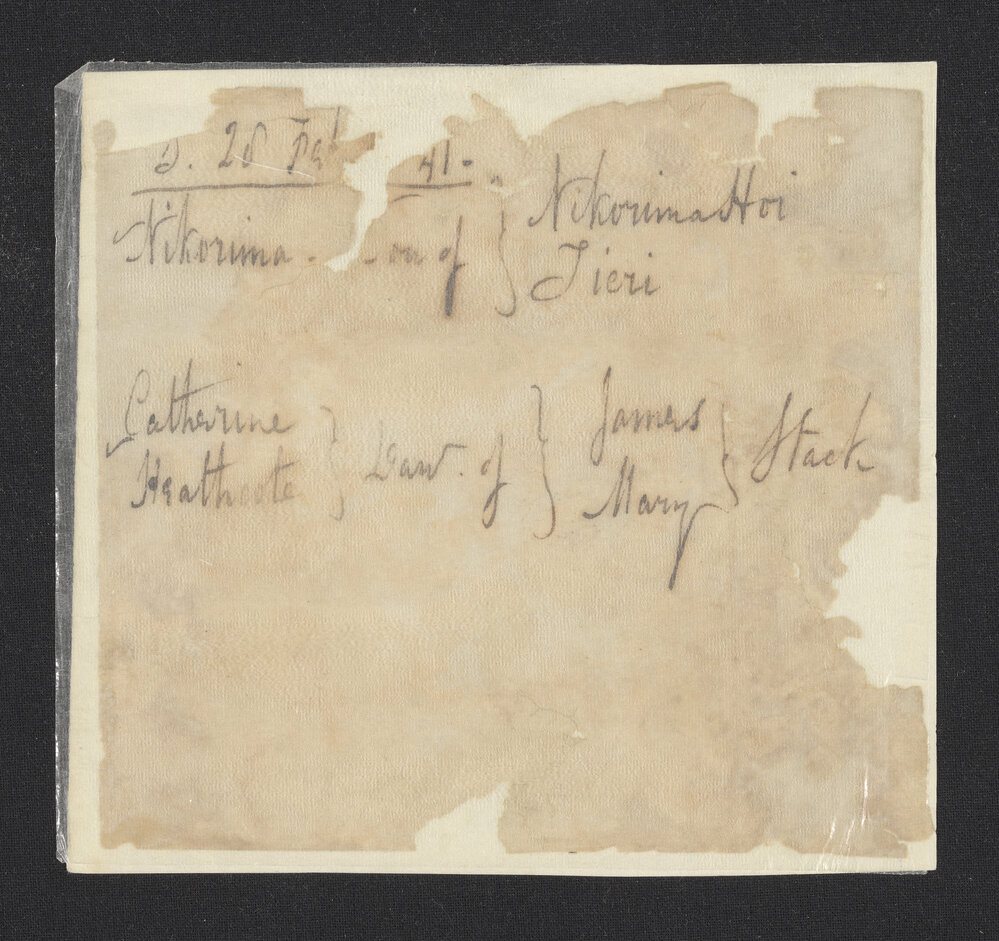 28 Feb 41-
Nikorima Hoi
Nikorima. on of
Tieri
Catherine James
Daur. of Stack
Heathcote Mary